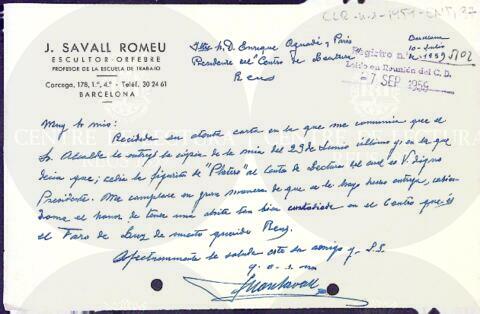 CLR-
J. SAVALL ROMEU
ESCULTOR - ORFEBRE
PROFESOR DE LA ESCUELA DE TRABAJO
Corcega, 178, 1.º, 4.ª - Teléf. 30 24 61
BARCELONA
D. Enrique Aguadé y Parés
Presidente del "Centro de Lectura"
Reus
Barcelona
10 - Julio
1959
Registro n.º 5102
Leído en Reunión del C. D.
7 SEP. 1959
Muy Sr. mio:
Recibida su atenta carta en la que me comunica que el
Sr. Alcalde le entregó la copia de la mia del 23 de Junio último y en la que
decia que; cedia la figurita de "Platero" al Centro de Lectura del cual es V. digno
Presidente. Me complace en gran manera de que se le haya hecho entrega,
dome el honor de tener una obrita tan bien custodiada en el Centro que es
el Faro de Luz de nuestro querido Reus.
Afectuosamente le saluda este su amigo y S.S.
q. e. s. m.